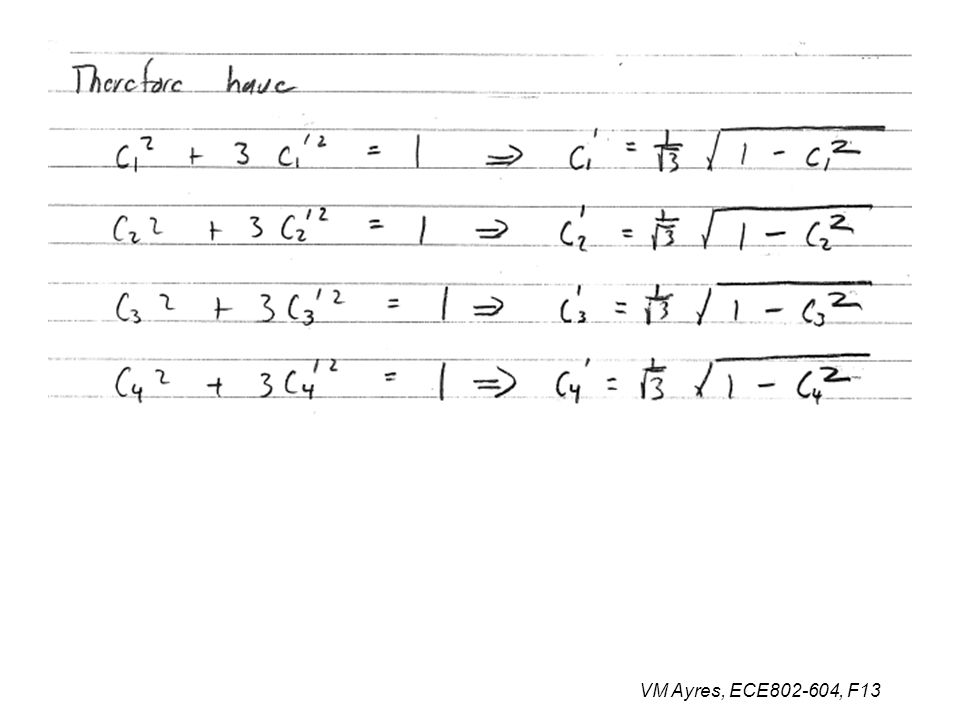 Therefore have
C₁² + 3 C₁'² = 1 ⇒ C₁' = 1/√3 √(1 - C₁²)
C₂² + 3 C₂'² = 1 ⇒ C₂' = 1/√3 √(1 - C₂²)
C₃² + 3 C₃'² = 1 ⇒ C₃' = 1/√3 √(1 - C₃²)
C₄² + 3 C₄'² = 1 ⇒ C₄' = 1/√3 √(1 - C₄²)
VM Ayres, ECE802-604, F13